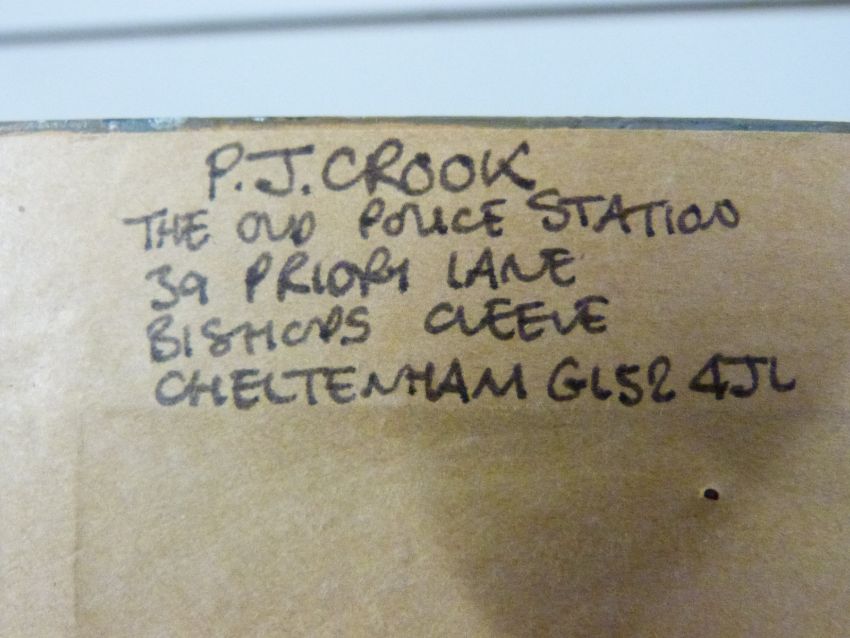 P.J. CROOK
THE OLD POLICE STATION
39 PRIORY LANE
BISHOPS CLEEVE
CHELTENHAM GL52 4JL